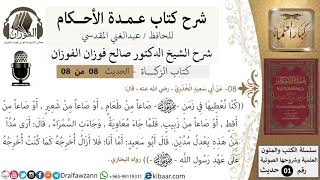 شرح كتاب عمدة الأحكام
للحافظ / عبدالغني المقدسي
شرح الشيخ الدكتور صالح فوزان الفوزان
كتاب الزكاة - الحديث 08 من 08
08- عَنْ أَبِي سَعِيدٍ الْخُدْرِيِّ - رضي الله عنه - قَالَ:
((كُنَّا نُعْطِيهَا فِي زَمَنِ - ﷺ - صَاعاً مِنْ طَعَامٍ، أَوْ صَاعاً مِنْ شَعِيرٍ، أَوْ صَاعاً مِنْ
أَقِطٍ، أَوْ صَاعاً مِنْ زَبِيبٍ. فَلَمَّا جَاءَ مُعَاوِيَةُ، وَجَاءَتِ السَّمْرَاءُ. قَالَ: أَرَى مُدّاً
مِنْ هَذِهِ يَعْدِلُ مُدَّيْنِ. قَالَ أَبُو سَعِيدٍ: أَمَّا أَنَا: فَلا أَزَالُ أُخْرِجُهُ كَمَا كُنْتُ أُخْرِجُهُ
عَلَى عَهْدِ رَسُولِ اللَّهِ - ﷺ -)) رواه البخاري.
الفوزان
سلسلة الكتب والمتون
العلمية وشروحها الصوتية
رقم 01 حديث
kibaar.com
Dralfawzann